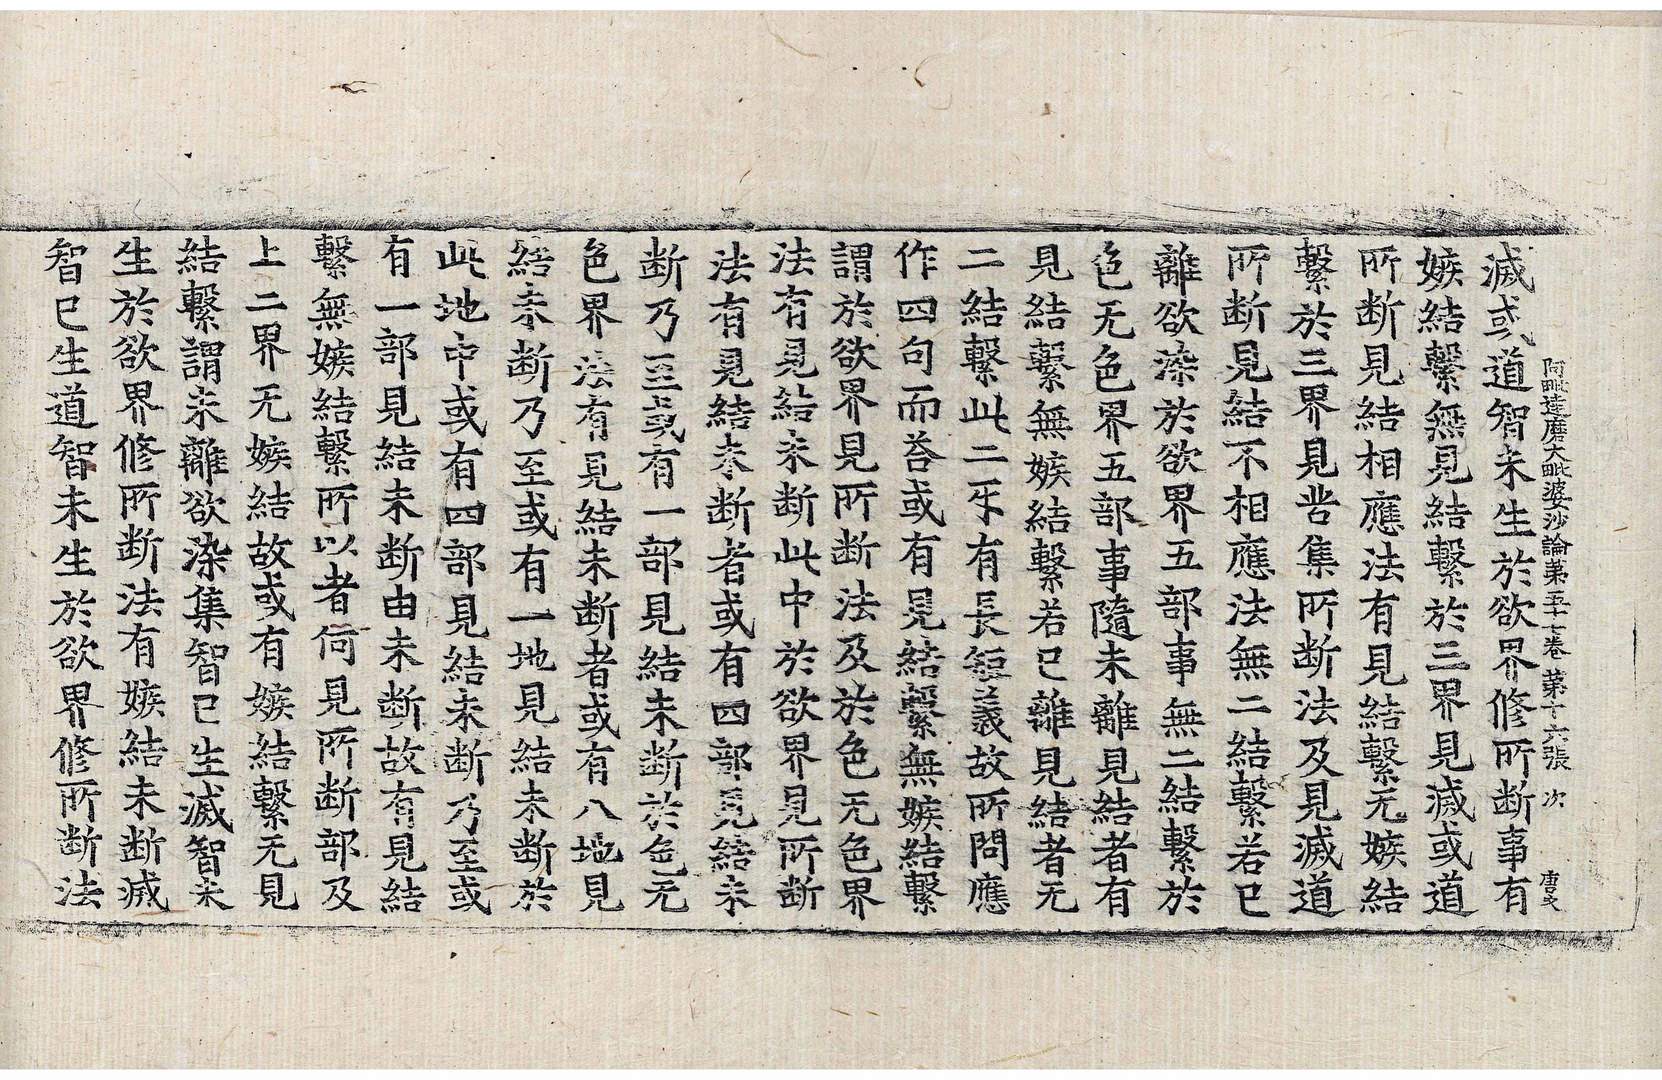 阿毗達磨大毗婆沙論第五十七卷 第十六張 次
滅或道智未生於欲界修所断事有
嫉結繫無見結繫於三界見滅或道
所断見結相應法有見結繫无嫉結
繫於三界見苦集所断法及見滅道
所断見結不相應法無二結繫若已
離欲染於欲界五部事無二結繫於
色无色界五部事隨未離見結者有
見結繫無嫉結繫若已離見結者无
二結繫此二互有長短義故所問應
作四句而荅或有見結繫無嫉結繫
謂於欲界見所断法及於色无色界
法有見結未断此中於欲界見所断
法有見結未断者或有四部見結未
断乃至或有一部見結未断於色无
色界法有見結未断者或有八地見
結未断乃至或有一地見結未断於
此地中或有四部見結未断乃至或
有一部見結未断由未断故有見結
繫無嫉結繫所以者何見所断部及
上二界无嫉結故或有嫉結繫无見
結繫謂未離欲染集智已生滅智未
生於欲界修所断法有嫉結未断滅
智已生道智未生於欲界修所断法